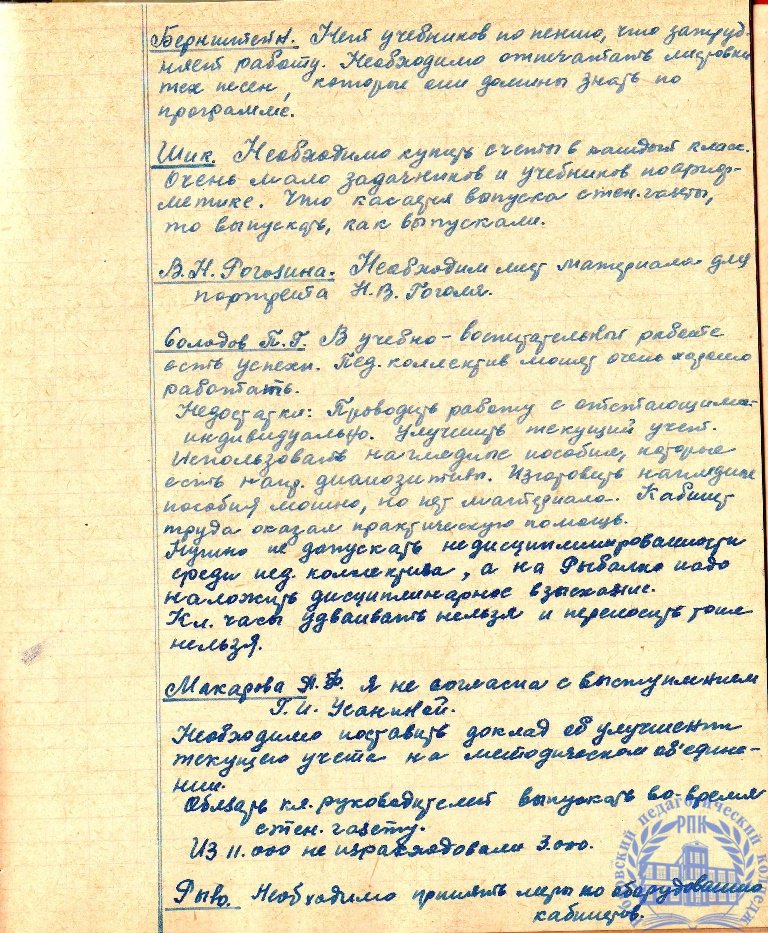 Бернштейн. Нет учебников по пению, что затруд-
няет работу. Необходимо отпечатать листовки
тех песен, которые они должны знать по
программе.
Шик. Необходимо купить счеты в каждый класс.
Очень мало задачников и учебников по ариф-
метике. Что касается выпуска стен. газеты,
то выпускать, как выпускали.
В.Н. Рогозина. Необходим лист материала для
портрета Н.В. Гоголя.
Солодов П.Г. В учебно-воспитательной работе
есть успехи. Пед. коллектив может очень хорошо
работать.
Недостатки: Проводить работу с отстающими
индивидуально. Улучшить текущий учет.
Использовать наглядные пособия, которые
есть напр. диапозитивы. Изготовить наглядные
пособия можно, но нет материала. Кабинет
труда оказал практическую помощь.
Нужно не допускать недисциплинированности
среди пед. коллектива, а на Рыбалко надо
наложить дисциплинарное взыскание.
Кл. часы удваивать нельзя и переносить тоже
нельзя.
Макарова А.Ф. Я не согласна с выступлением
Г.И. Усаниной.
Необходимо поставить доклад об улучшении
текущего учета на методическом об'едине-
нии.
Обязать кл. руководителей выпускать во-время
стен. газету.
Из 11.000 не израсходовали 3.000.
Рыво. Необходимо принять меры по оборудованию
кабинетов.
РПК
педагогический колледж